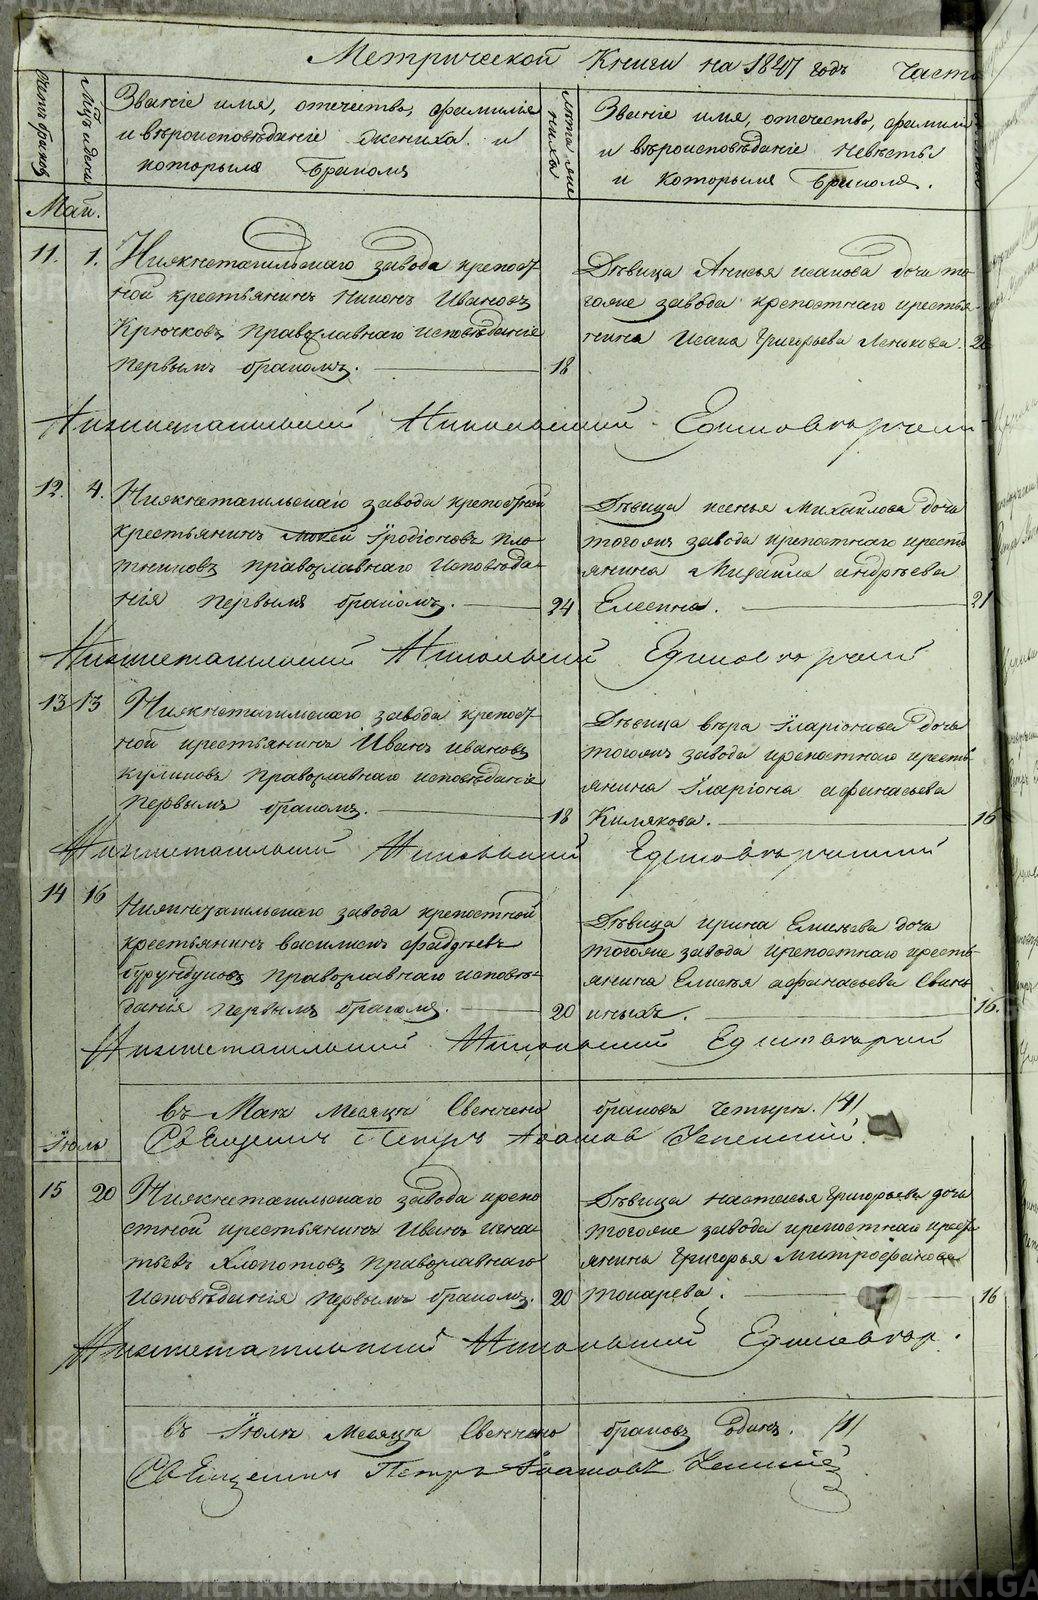 METRIKI.GASO-URAL.RU
Метрической Книги на 1847 годъ Часть
Счетъ браковъ
Мцъ и день
Званіе имя, отечество, фамилія
и вѣроисповѣданіе жениха. и
которымъ бракомъ
лѣта жениха
Званіе имя, отечество, фамилія
и вѣроисповѣданіе невѣсты
и которымъ бракомъ.
Маій.
11. 1. Нижнетагильскаго завода крепост
ной крестьянинъ Никонъ Ивановъ
Крючковъ православнаго исповѣданіе
первымъ бракомъ. 18
Дѣвица Анисья исакова дочь то
гоже завода крепостнаго крестья
нина Исака Григорьева
Нижнетагильской Никольской Единоверческой
12. 4. Нижнетагильскаго завода крепостной
крестьянинъ мокей Іродіоновъ пло
тниковъ православнаго исповѣда
нія первымъ бракомъ. 24
Дѣвица ксенья Михайлова дочь
тогожъ завода крепостнаго кресть
янина Михаила андрѣева
21
Нижнетагильской Никольской Единоверческой
13 13 Нижнетагильскаго завода крепост
ной крестьянинъ Иванъ ивановъ
куликовъ православнаго исповѣданіе
первымъ бракомъ. 18
Дѣвица вѣра Іларіонова дочь
тогожъ завода крепостнаго кресть
янина Іларіона афанасьева
Килякова. 16
Нижнетагильской Никольской Единоверческой
14 16 Нижнетагильскаго завода крепостной
крестьянинъ василисъ фаддѣевъ
бурундуковъ православнаго исповѣ
данія первымъ бракомъ. 20
Дѣвица ирина Елисѣева дочь
тогоже завода крепостнаго кресть
янина Елисѣя афанасьева Свинь
иныхъ. 16.
Нижнетагильской Никольской Единоверческой
въ Маѣ месяцѣ Свенчено браковъ четыре. /4/
Священникъ Петръ
Іюль
15 20 Нижнетагильскаго завода крепо
стной крестьянинъ Иванъ игна
тьевъ Хлопотовъ православнаго
исповѣданія первымъ бракомъ. 20
Дѣвица настасья Григорьева дочь
тогоже завода крепостнаго кресть
янина Григорья митрофанова
токарева. 16
Нижнетагильской Никольской Единовер.
въ Іюлѣ месяцѣ Свенчено браковъ одинъ. /1/
Священникъ Петръ
METRIKI.GASO-URAL.RU